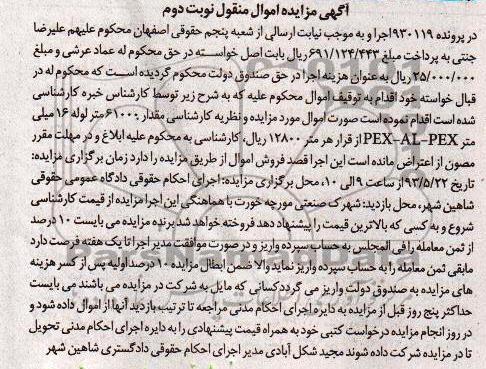 آگهی مزایده اموال منقول نوبت دوم
در پرونده ۹۳۰۱۱۹ اجرا و به موجب نیابت ارسالی از شعبه پنجم حقوقی اصفهان محکوم علیهم علیرضا
جنتی به پرداخت مبلغ ۶۹۱/۱۲۴/۴۴۳ ریال بابت اصل خواسته در حق محکوم له عماد عرشی و مبلغ
۲۵/۰۰۰/۰۰۰ ریال به عنوان هزینه اجرا در حق صندوق دولت محکوم گردیده است که محکوم له در
قبال خواسته خود اقدام به توقیف اموال محکوم علیه که به شرح زیر توسط کارشناس خبره کارشناسی
شده است اقدام نموده است صورت اموال مورد مزایده و نظریه کارشناسی مقدار ۶۱۰۰۰ متر لوله ۱۶ میلی
متر PEX-AL-PEX از قرار هر متر ۱۲۸۰۰ ریال، کارشناسی به محکوم علیه ابلاغ و در مهلت مقرر
مصون از اعتراض مانده است این اجرا قصد فروش اموال از طریق مزایده را دارد زمان برگزاری مزایده:
تاریخ ۹۳/۵/۲۲ از ساعت ۹ الی ۱۰، محل برگزاری مزایده: اجرای احکام حقوقی دادگاه عمومی حقوقی
شاهین شهر، محل بازدید: شهرک صنعتی مورچه خورت با هماهنگی این اجرا مزایده از قیمت کارشناسی
شروع و به کسی که بالاترین قیمت را پیشنهاد دهد فروخته خواهد شد برنده مزایده می بایست ۱۰ درصد
از ثمن معامله را فی المجلس به حساب سپرده واریز و در صورت موافقت مدیر اجرا تا یک هفته فرصت دارد
مابقی ثمن معامله را به حساب سپرده واریز نماید والا ضمن ابطال مزایده ۱۰ درصد اولیه پس از کسر هزینه
های مزایده به صندوق دولت واریز می گردد کسانی که مایل به شرکت در مزایده می باشند می بایست
حداکثر پنج روز قبل از مزایده به دایره اجرای احکام مدنی مراجعه تا ترتیب بازدید آنها از اموال داده شود و
در روز انجام مزایده درخواست کتبی خود به همراه قیمت پیشنهادی را به دایره اجرای احکام مدنی تحویل
تا در مزایده شرکت داده شوند مجید شکل آبادی مدیر اجرای احکام حقوقی دادگستری شاهین شهر